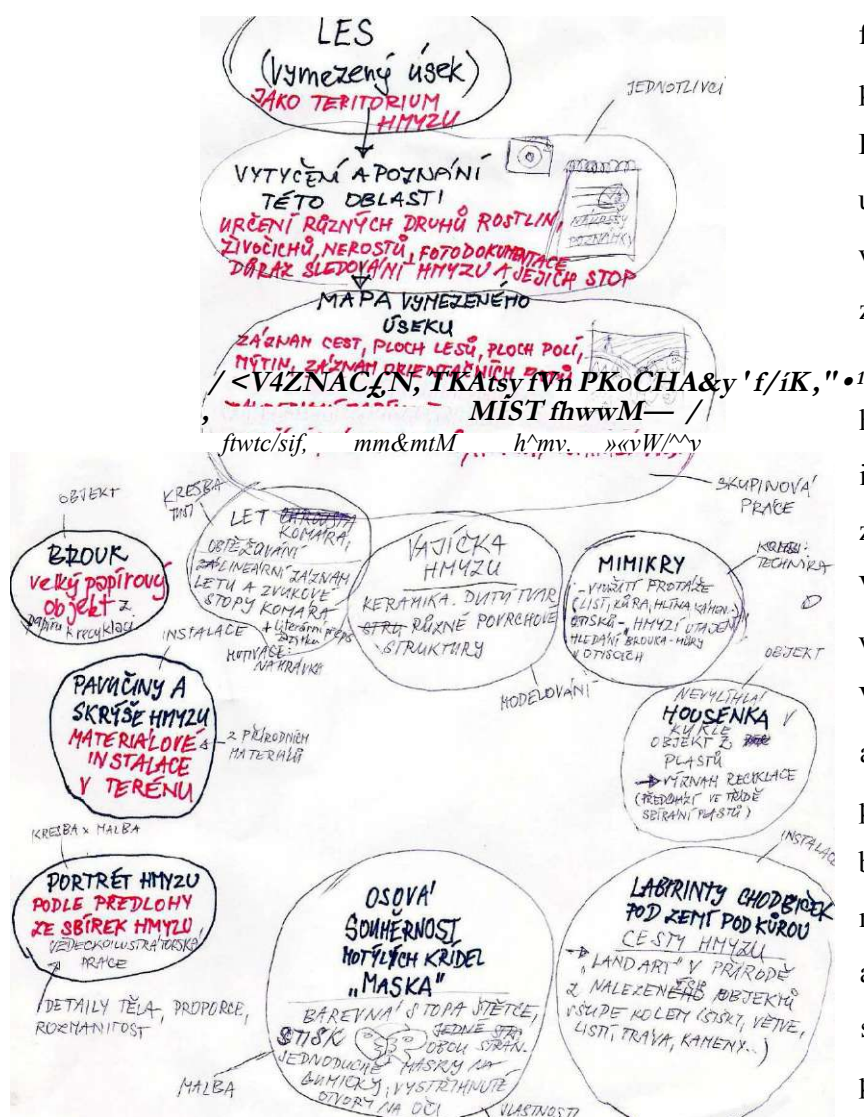 LES
(vymezený úsek)
JAKO TERITORIUM
HMYZU
JEDNOTLIVCI
VYTYČENÍ A POZNÁNÍ
TÉTO OBLASTI
URČENÍ RŮZNÝCH DRUHŮ ROSTLIN,
ŽIVOČICHŮ, NEROSTŮ, FOTODOKUMENTACE
DŮRAZ SLEDOVÁNÍ HMYZU A JEJICH STOP
NÁKRESY
POZNÁMKY
MAPA VYMEZENÉHO
ÚSEKU
ZÁZNAM CEST, PLOCH LESŮ, PLOCH POLÍ,
MÝTIN, ZÁZNAM ORIENTAČNÍCH
/ <V4ZNAC£N, TKAtsy fVn PKoCHA&y ' f/íK,"•
, MÍST fhwwM— /
ftwtc/sif, mm&mtM h^mv. »«vW/^^v
SKUPINOVÁ
PRÁCE
OBJEKT
BROUK
velký papírový
objekt z
papíru k recyklaci
KRESBA
TUŠÍ
LET
KOMÁRA,
OBTĚŽOVÁNÍ
ZÁZNAM
LETU A ZVUKOVÉ
STOPY KOMÁRA
MOTIVACE:
VAJÍČKA
HMYZU
KERAMIKA. DUTÝ TVAR
RŮZNÉ POVRCHOVÉ
STRUKTURY
MODELOVÁNÍ
TECHNIKA
MIMIKRY
- VYUŽITÍ
(LIST, KŮRA, HLÍNA, KÁMEN-
HMYZÍ UTAJENÍ
HLEDÁNÍ BROUKA-MŮRY
V OTISCÍCH
INSTALACE
PAVUČINY A
SKRÝŠE HMYZU
MATERIÁLOVÉ
INSTALACE
V TERÉNU
Z PŘÍRODNÍCH
MATERIÁLŮ
OBJEKT
NEVYLÍHLÁ
HOUSENKA V
KUKLE
OBJEKT Z
PLASTŮ
→ VÝZNAM RECYKLACE
(PŘEDCHÁZÍ VE TŘÍDĚ
SBÍRÁNÍ PLASTŮ)
KRESBA x MALBA
PORTRÉT HMYZU
PODLE PŘEDLOHY
ZE SBÍREK HMYZU,
PRÁCE
DETAILY TĚLA, PROPORCE,
ROZMANITOST
OSOVÁ
SOUMĚRNOST
MOTÝLÍCH KŘÍDEL
„MASKA"
BAREVNÁ STOPA ŠTĚTCE,
OTISK JEDNÉ
OBOU STRAN.
JEDNODUCHÉ MASKY NA
GUMIČKY, VYSTŘIHNUTÉ
OTVORY NA OČI
MALBA
VLASTNOSTI
INSTALACE
LABIRINTY CHODBIČEK
POD ZEMÍ POD KŮROU
CESTY HMYZU
→ „LANDART" V PŘÍRODĚ
Z NALEZENÉHO OBJEKTŮ
VŠUDE KOLEM (ŠIŠKY, VĚTVE,
LISTÍ, TRÁVA, KAMENY...)